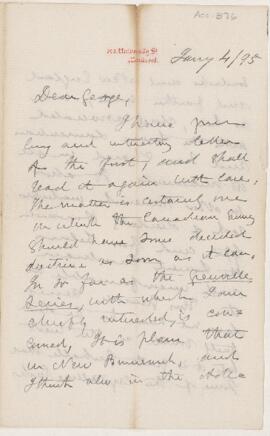 Acc-876
University St
Montreal.
Jany 4/95
Dear George,
I have your
long and interesting letter
of the first, and shall
read it again with care.
The matter is certainly one
on which the Canadian Survey
should have some decided
doctrine as soon as it can.
In so far as the Grenville
Series, with which I am
chiefly interested, is con-
cerned, it is plain that
in New Brunswick, and
I think also in the